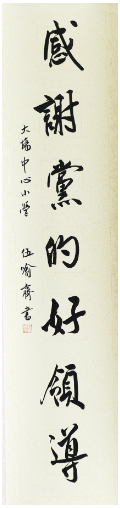 感謝黨的好領導
大埸中心小學 伍喻齊書